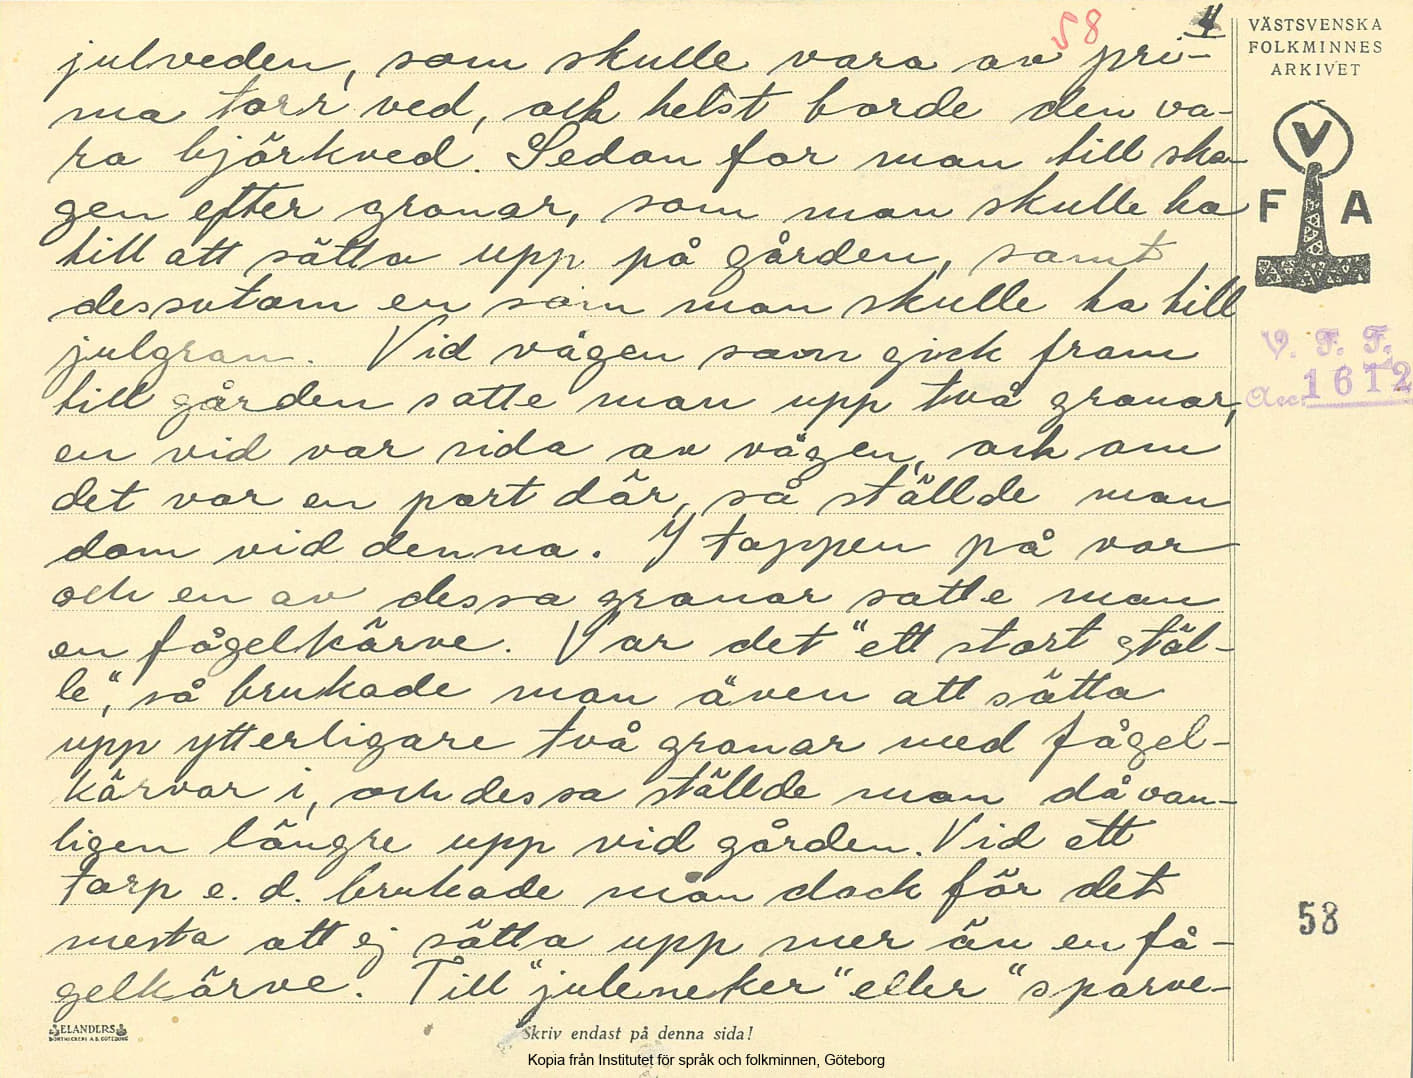 58 4
julveden, som skulle vara av pri-
ma torr ved, och helst borde den va-
ra björkved. Sedan for man till sko-
gen efter granar, som man skulle ha
till att sätta upp på gården, samt
dessutom en som man skulle ha till
julgran. Vid vägen som gick fram
till gården satte man upp två granar,
en vid var sida av vägen, och om
det var en port där, så ställde man
dom vid denna. I toppen på var
och en av dessa granar satte man
en fågelkärve. Var det "ett stort stäl-
le", så brukade man även att sätta
upp ytterligare två granar med fågel-
kärvar i, och dessa ställde man då van-
ligen längre upp vid gården. Vid ett
torp e. d. brukade man dock för det
mesta att ej sätta upp mer än en få-
gelkärve. Till "juleneker" eller "sparve-
VÄSTSVENSKA
FOLKMINNES
ARKIVET
V
F A
V. F. F.
Acc. 1612
58
ELANDERS
BOKTRYCKERI A.B. GÖTEBORG
Skriv endast på denna sida!
Kopia från Institutet för språk och folkminnen, Göteborg